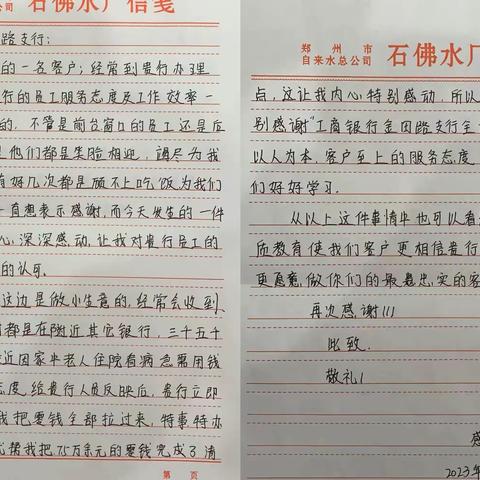 石佛水厂信笺
路支行:
的一名客户;经常到贵行办理
行的员工服务态度及工作效率一
的,不管是前台窗口的员工还是后
是他们都是笑脸相迎,竭尽为我
有好几次都是顾不上吃饭为我们
一直想表示感谢,而今天发生的一件
心,深深感动,让我对贵行员工的
的认可。
这边是做小生意的,经常会收到
都是在附近其它银行,三十五十
近因家中老人住院看病急需用钱
态度,给贵行人员反映后,贵行立即
我把零钱全部拉过来,特事特办
帮我把7.5万余元的零钱完成了清
第 页
郑州市
自来水总公司
石佛水厂
点,这让我内心特别感动,所以
别感谢"工商银行金回路支行全
以人为本,客户至上的服务态度
们好好学习.
从以上这件事情中也可以看
质教育使我们客户更相信贵行
更愿意,做你们的最忠实的客
再次感谢!!!
此致.
敬礼!
感
2023年